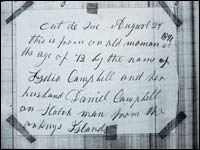 cut de Sue August 24
1894
this is from an old woman at
the age of 72 by the name of
Lydia Campbell and her
husband Daniel Campbell
an Scotch man from the
orkneys Islands